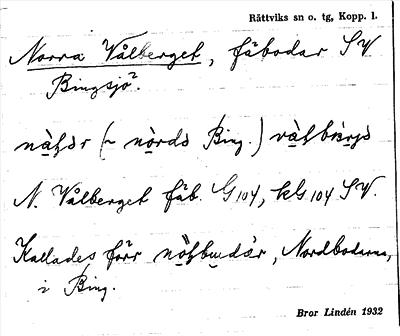 Rättviks sn o. tg, Kopp. l.
Norra Vålberget, fäbodar SV
Bingsjö.
(~ Bing.)
N. Vålberget fäb. G104, kG104 SV.
Kallades förr Nordbodarna,
i Bing.
Bror Lindén 1932